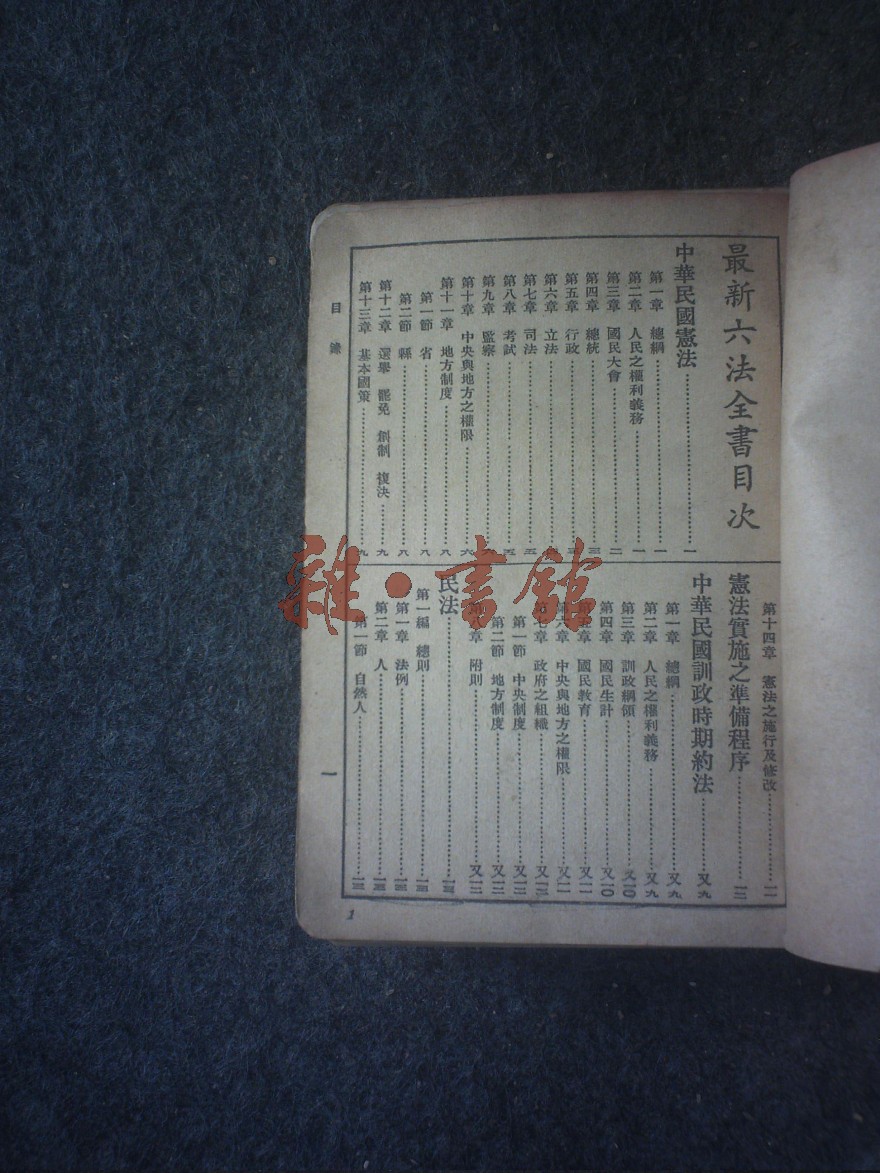 最新六法全書目次
中華民國憲法……一
第一章 總綱……一
第二章 人民之權利義務……一
第三章 國民大會……二
第四章 總統……三
第五章 行政
第六章 立法……四
第七章 司法……五
第八章 考試……五
第九章 監察
第十章 中央與地方之權限……六
第十一章 地方制度……八
第一節 省……八
第二節 縣……八
第十二章 選舉 罷免 創制 複決……九
第十三章 基本國策……九
第十四章 憲法之施行及修改……一一
憲法實施之準備程序……一三
中華民國訓政時期約法……又九
第一章 總綱……又九
第二章 人民之權利義務……又九
第三章 訓政綱領……又一〇
第四章 國民生計……又一〇
國民教育……又一一
中央與地方之權限……又一一
第七章 政府之組織……又一二
第一節 中央制度……又一二
第二節 地方制度……又一二
附則……又一二
民法……一三
第一編 總則……一三
第一章 法例……一三
第二章 人……一三
第一節 自然人……一三
目錄
一
1
雜·書館